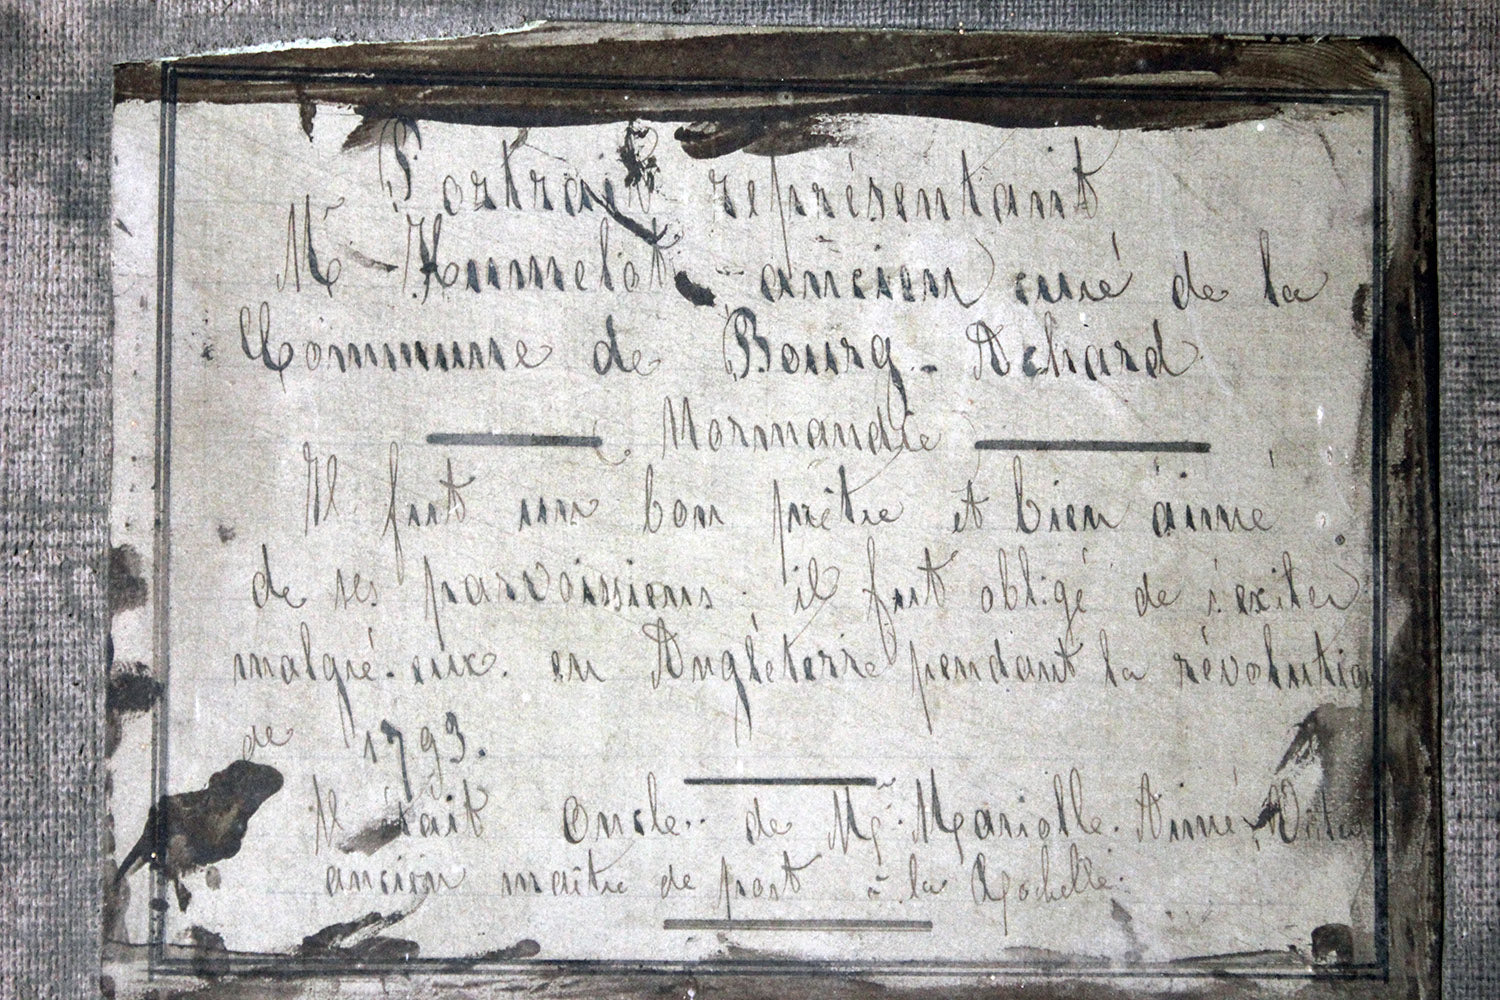 Portrait représentant
Mr Humelot ancien curé de la
Commune de Bourg-Achard
Normandie
Il fut un bon prêtre et bien aimé
de ses paroissiens; il fut obligé de s'exiler
malgré-eux. en Angléterre pendant la révolution
de 1793.
Il était Oncle de Mr Mariolle Aimé
ancien maître de port à la Rochelle.